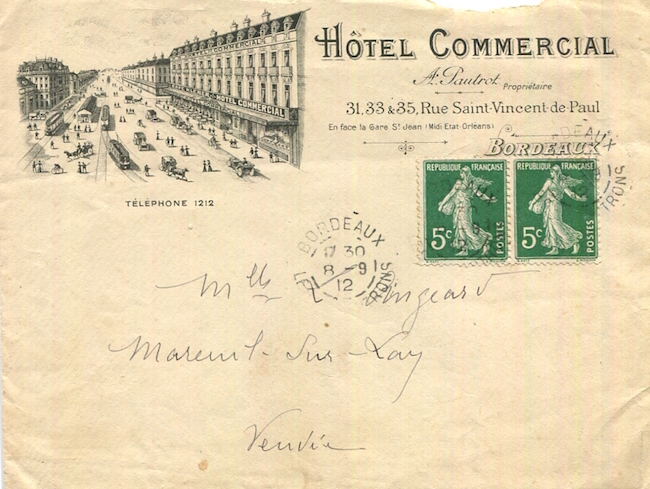 HÔTEL COMMERCIAL
A. Pautrot Propriétaire
31, 33 & 35, Rue Saint-Vincent-de Paul
En face la Gare St Jean (Midi-État-Orléans)
BORDEAUX
HOTEL COMMERCIAL
HOTEL COMMERCIAL
TÉLÉPHONE 1212
REPUBLIQUE FRANÇAISE
5c
POSTES
REPUBLIQUE FRANÇAISE
5c
POSTES
BORDEAUX
17 30
8 - 9
12
GIRONS
Mlle
Mareuil-Sur-Lay
Vendée